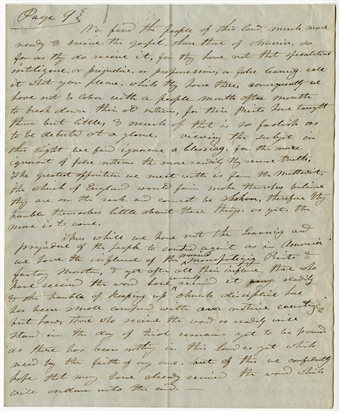 Page 9
We find the people of this land, much more
ready to receive the gospel than those of America, so
far as they do receive it, for they have not that speculative
intelligence, or prejudice, or prepossession, or false learning call
it what you please, which they have there, consequently we
have not to labor with a people month after month
to break down their old notions, for their Priests have taught
them but little, & much of that is so foolish as
to be detected at a glance. viewing the subject in
this light we find ignorance a blessing, for the more
ignorant of false notions the more readily they receive truth,
The greatest opposition we meet with is from the Methodist,
the Church of England would fain make themselves believe
they are on the rock and cannot be shaken, therefore they
trouble themselves little about these things. as yet, the
more is to come.
Thus while we have not the learning and
prejudice of the people to contend against as in America
we have the influence of the monopolizing Priests &
factory Masters, & yet after all their influence, those who
have received the word have received it readily
& the trouble of keeping up church discipline has
been small compared with over
but how those who receive the word so readily will
stand in the day of trial remains yet to be proved
as there has been nothing in this land as yet which
need try the faith of any one. out of this we confidently
hope that many have already received the word which
will endure unto the end. —